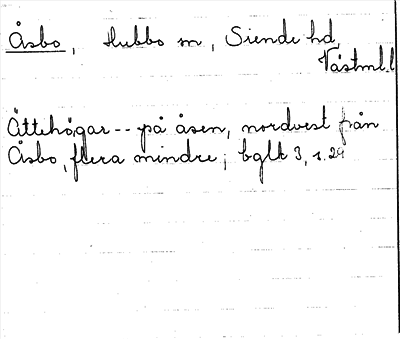 Åsbo, Hubbo sn, Siende hd
Västml.l
Ättehögar -- på åsen, nordvest från
Åsbo, flera mindre; bglk 3, s. 29